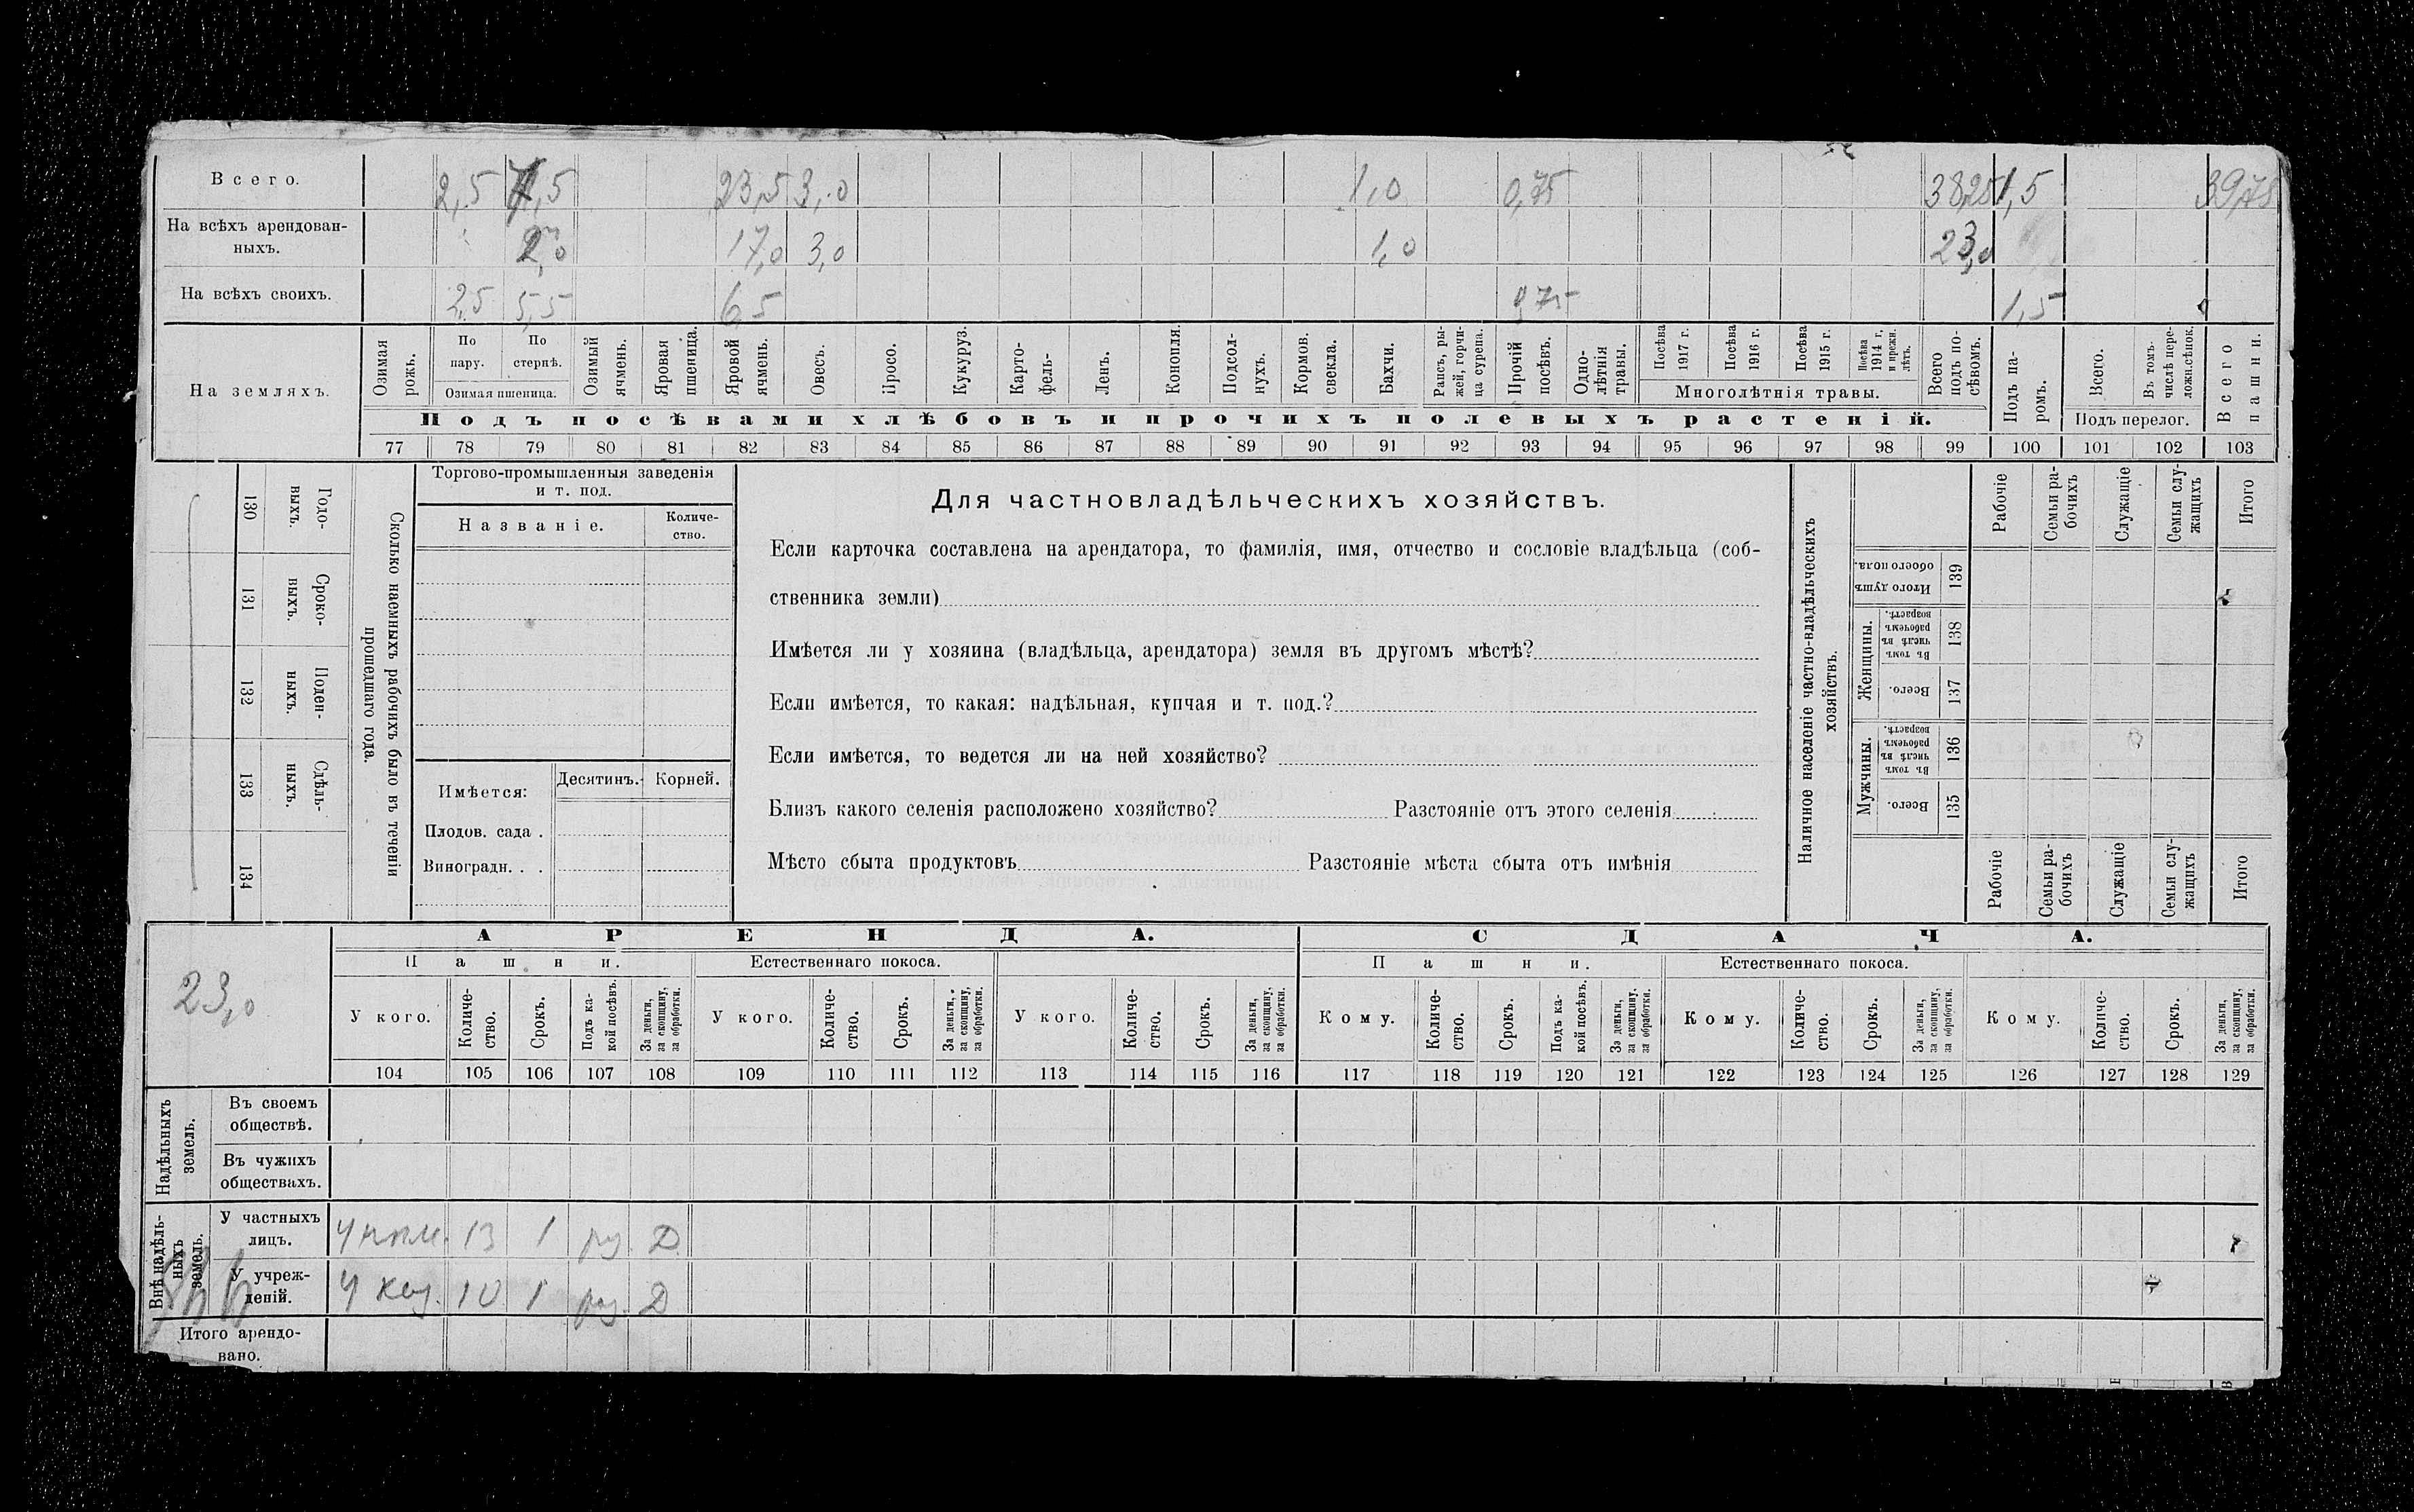 Всего. 2,5 7,5 23,5 3,0 1,0 0,75 38,25 1,5 39,75
На всѣхъ арендован-
ныхъ. 2,0 17,0 3,0 1,0 23,0
На всѣхъ своихъ. 2,5 5,5 6,5 0,75 1,5
На земляхъ.
Озимая рожь.
По пару.
По стернѣ.
Озимая пшеница.
Озимый ячмень.
Яровая пшеница.
Яровой ячмень.
Овесъ.
Просо.
Кукуруз.
Карто-
фель-
Ленъ.
Конопля.
Подсол-
нухъ.
Кормов.
свекла.
Бахчи.
Рапсъ, ры-
жей, горчи-
ца сурепа.
Прочій
посѣвъ.
Одно-
лѣтнія
травы.
Посѣва
1917 г.
Посѣва
1916 г.
Посѣва
1915 г.
Посѣва
1914 г.
и прежн.
лѣтъ.
Многолѣтнія травы.
Всего
подъ по-
сѣвомъ.
Подъ па-
ромъ.
Всего.
Въ томъ-
числѣ пере-
ложн.сѣнок.
Подъ перелог.
Всего
пашни.
Подъ посѣвами хлѣбовъ и прочихъ полевыхъ растеній.
77 78 79 80 81 82 83 84 85 86 87 88 89 90 91 92 93 94 95 96 97 98 99 100 101 102 103
130
Годо-
выхъ.
131
Сроко-
выхъ.
132
Поден-
ныхъ.
133
Сдѣль-
ныхъ.
134
Сколько наемныхъ рабочихъ было въ теченіи
прошедшаго года.
Торгово-промышленныя заведенія
и т. под.
Названіе.
Количе-
ство.
Имѣется:
Десятинъ.
Корней.
Плодов. сада .
Виноградн. . .
Для частновладѣльческихъ хозяйствъ.
Если карточка составлена на арендатора, то фамилія, имя, отчество и сословіе владѣльца (соб-
ственника земли)
Имѣется ли у хозяина (владѣльца, арендатора) земля въ другомъ мѣстѣ?
Если имѣется, то какая: надѣльная, купчая и т. под.?
Если имѣется, то ведется ли на ней хозяйство?
Близъ какого селенія расположено хозяйство? Разстояніе отъ этого селенія
Мѣсто сбыта продуктовъ Разстояніе мѣста сбыта отъ имѣнія
Наличное населеніе частно-владѣльческихъ
хозяйствъ.
Рабочіе
Семьи ра-
бочихъ
Служащіе
Семьи слу-
жащихъ
Итого
Итого душъ
обоего пола.
139
Женщины.
Въ томъ
числѣ въ
рабочемъ
возрастѣ.
138
Всего.
137
Мужчины.
Въ томъ
числѣ въ
рабочемъ
возрастѣ.
136
Всего.
135
Рабочіе
Семьи ра-
бочихъ
Служащіе
Семьи слу-
жащихъ
Итого
23,0
АРЕНДА. СДАЧА.
Пашни. Естественнаго покоса. Пашни. Естественнаго покоса.
У кого.
Количе-
ство.
Срокъ.
Подъ ка-
кой посѣвъ.
За деньги,
за скопщину,
за обработки.
У кого.
Количе-
ство.
Срокъ.
За деньги,
за скопщину,
за обработки.
У кого.
Количе-
ство.
Срокъ.
За деньги,
за скопщину,
за обработки.
Кому.
Количе-
ство.
Срокъ.
Подъ ка-
кой посѣвъ.
За деньги,
за скопщину,
за обработки.
Кому.
Количе-
ство.
Срокъ.
За деньги,
за скопщину,
за обработки.
Кому.
Количе-
ство.
Срокъ.
За деньги,
за скопщину,
за обработки.
104 105 106 107 108 109 110 111 112 113 114 115 116 117 118 119 120 121 122 123 124 125 126 127 128 129
Надѣльныхъ
земель.
Въ своемъ
обществѣ.
Въ чужихъ
обществахъ.
Внѣ надѣль-
ныхъ
земель.
У частныхъ
лицъ. 13 1 Д
У учреж-
деній. 10 1 Д
Итого арендо-
вано.